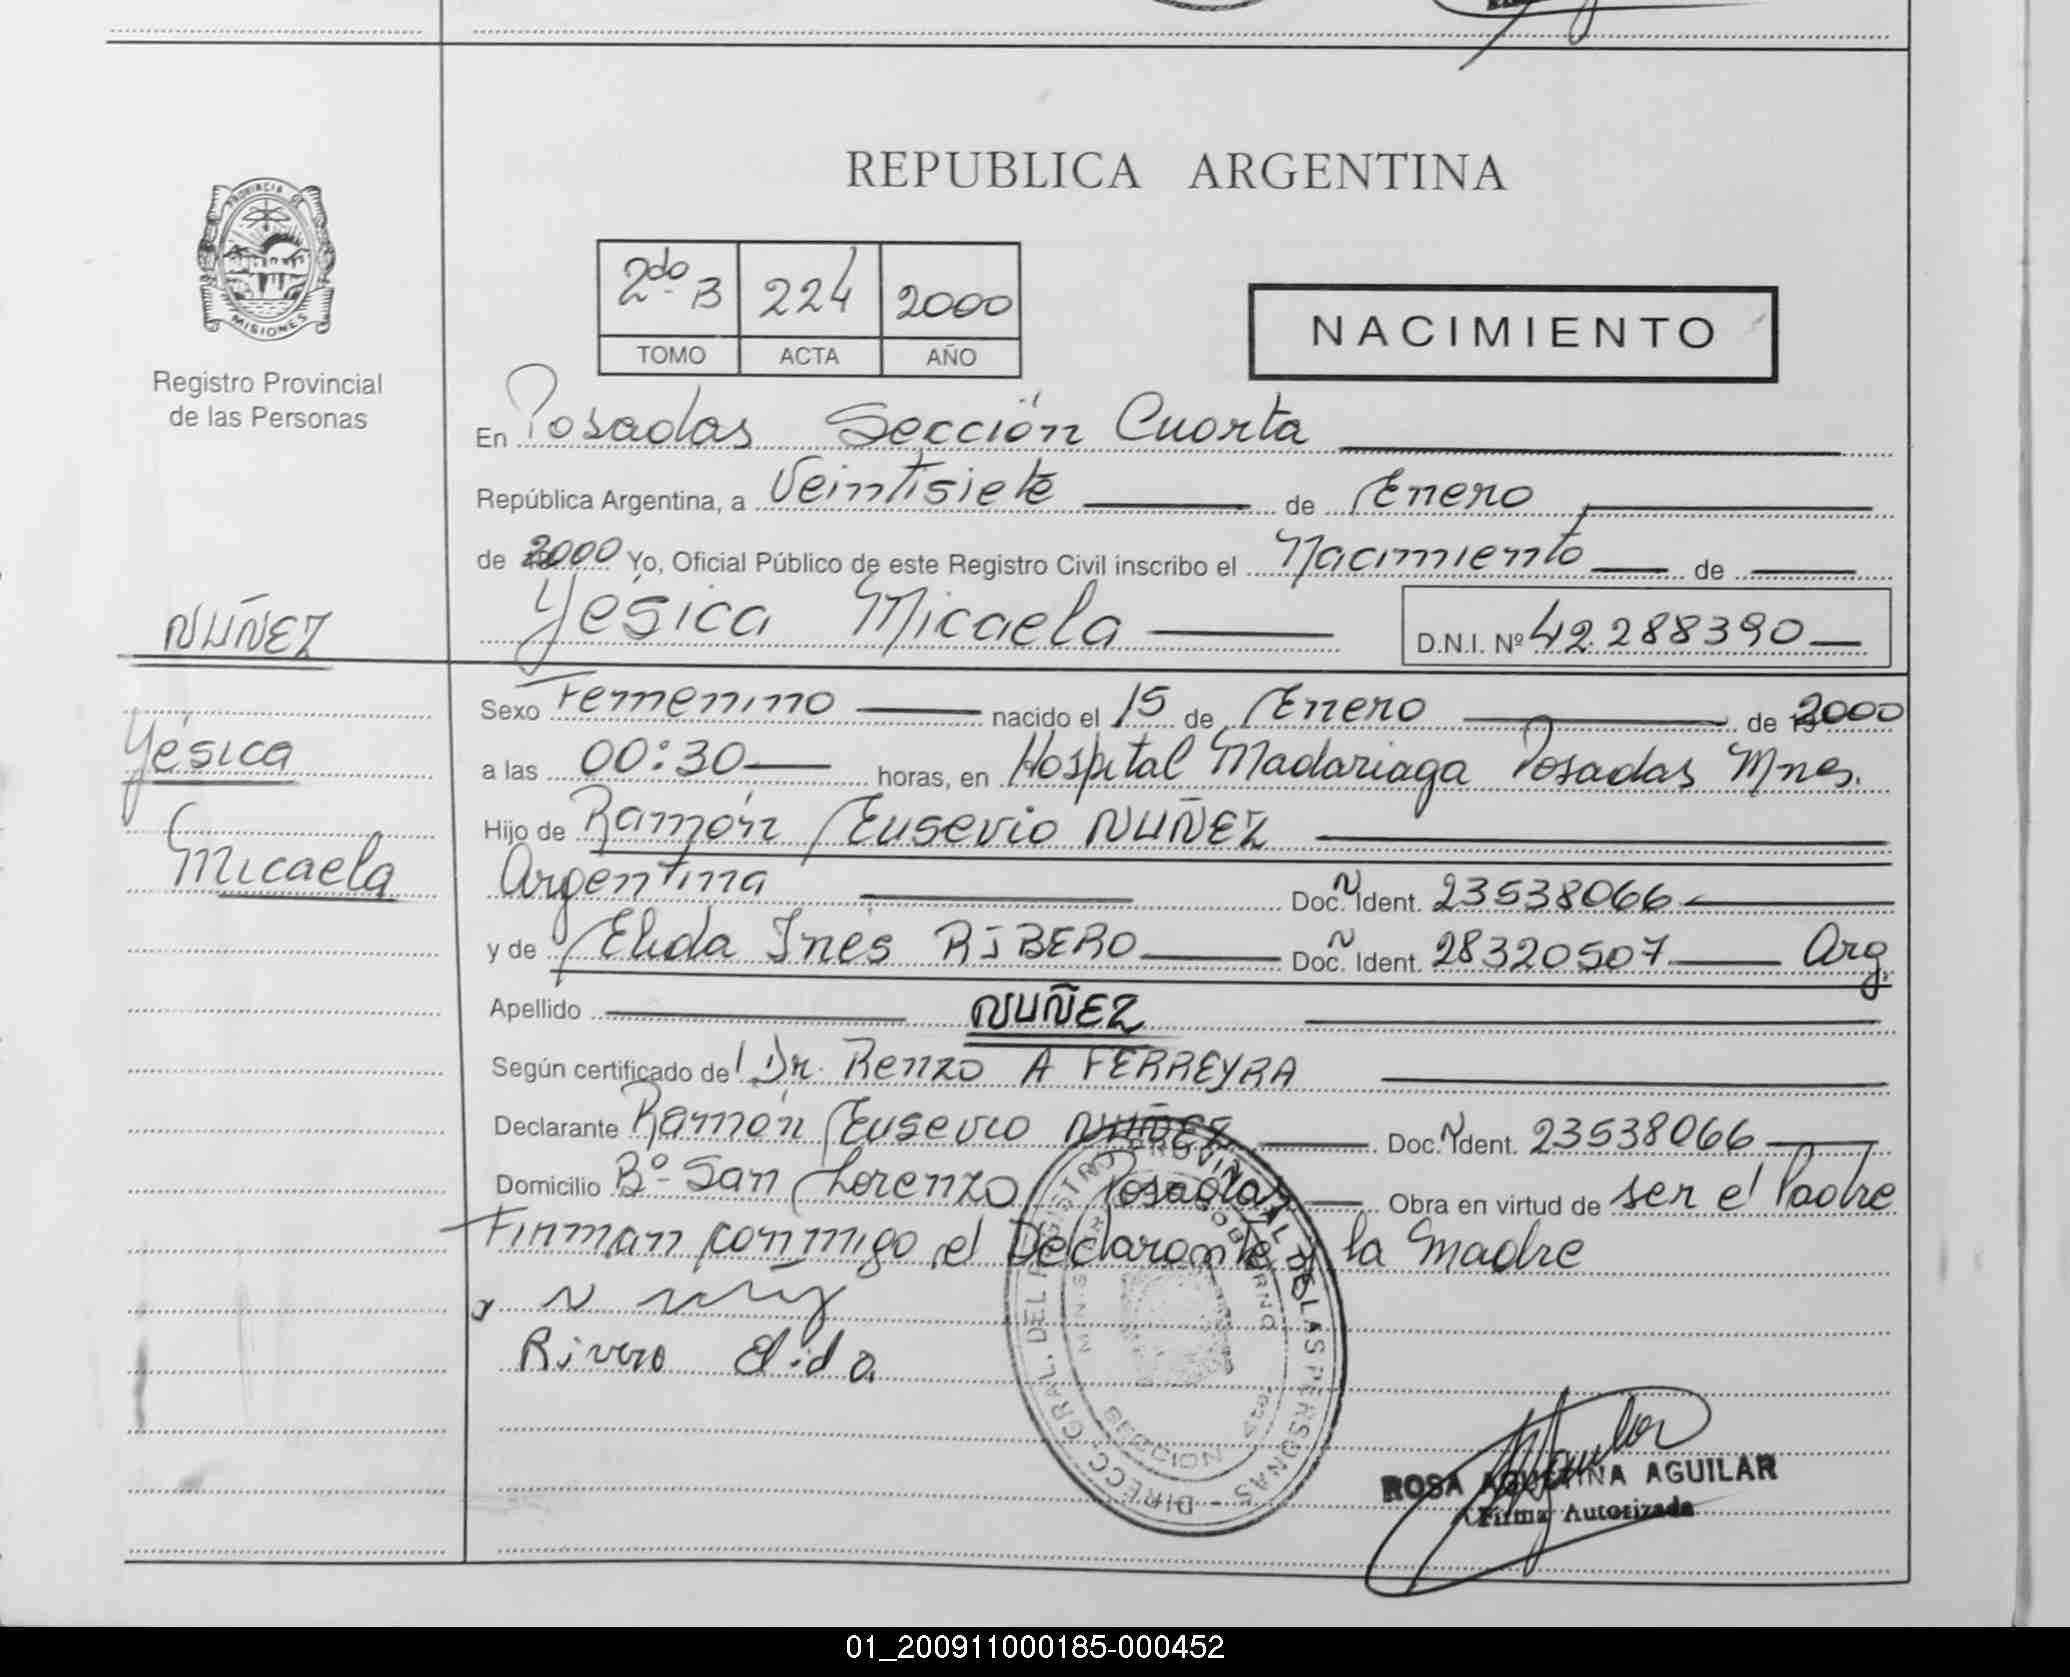 REPUBLICA ARGENTINA
PROVINCIA DE
MISIONES
Registro Provincial
de las Personas
2do B 224 2000
TOMO ACTA AÑO
NACIMIENTO
En Posadas Sección Cuarta
República Argentina, a Veintisiete de Enero
de 2000 Yo, Oficial Público de este Registro Civil inscribo el Nacimiento de
Yésica Micaela D.N.I. Nº 42.288390
NUÑEZ
Yésica
Micaela
Sexo Femenino nacido el 15 de Enero de 2000
a las 00:30 horas, en Hospital Madariaga Posadas Mnes.
Hijo de Ramón Eusevio NUÑEZ
Argentina Doc. Ident. 23538066
y de Elida Inés RIBERO Doc. Ident. 28320507 Arg.
Apellido NUÑEZ
Según certificado del Dr. Renzo A FERREYRA
Declarante Ramón Eusevio NUÑEZ Doc. Ident. 23538066
Domicilio Bº San Lorenzo Posadas Obra en virtud de ser el Padre
Firman conmigo el Declarante y la Madre
Rivero Elida
DIRECC. GRAL. DEL REGISTRO PROVINCIAL DE LAS PERSONAS
ROSA AGUSTINA AGUILAR
Firma Autorizada
01_200911000185-000452